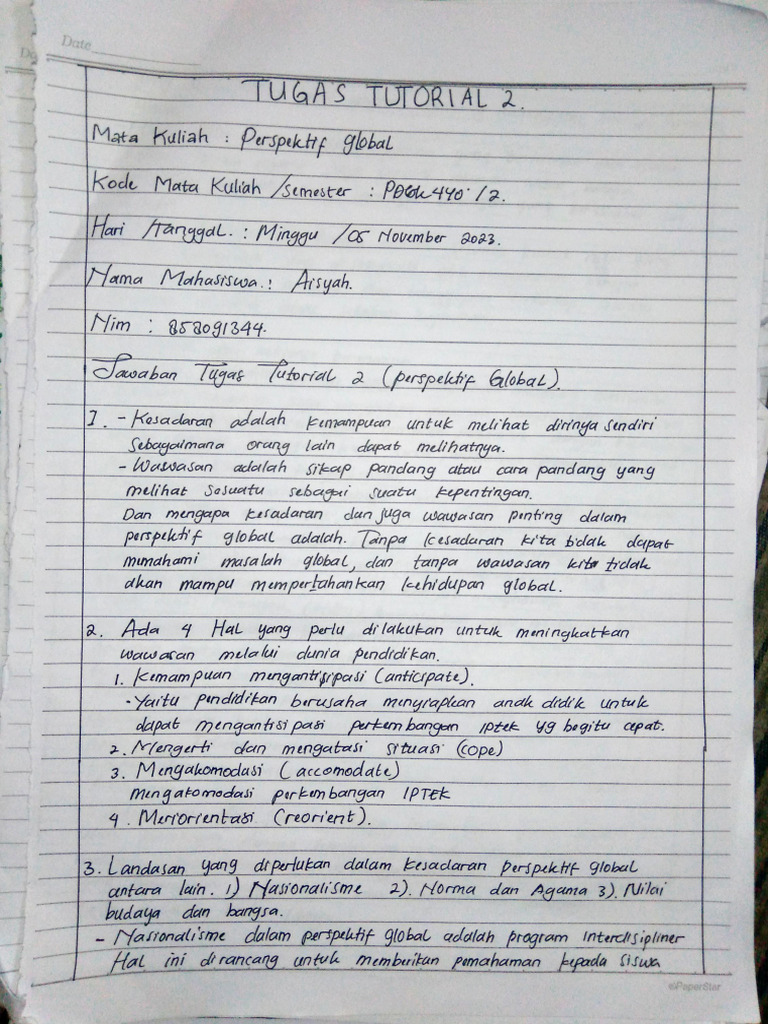 Date
TUGAS TUTORIAL 2.
Mata Kuliah : Perspektif global
Kode Mata Kuliah /semester : /2.
Hari /tanggal. : Minggu /05 November 2023.
Nama Mahasiswa. : Aisyah.
Nim : 858091344.
Jawaban Tugas Tutorial 2 (perspektif Global).
1. - Kesadaran adalah kemampuan untuk melihat dirinya sendiri
sebagaimana orang lain dapat melihatnya.
- Wawasan adalah sikap pandang atau cara pandang yang
melihat sosuatu sebagai suatu kepentingan.
Dan mengapa kesadaran dan juga wawasan penting dalam
perspektif global adalah. Tanpa kesadaran kita tidak dapat
memahami masalah global, dan tanpa wawasan kita tidak
akan mampu mempertahankan kehidupan global.
2. Ada 4 Hal yang perlu dilakukan untuk meningkatkan
wawasan melalui dunia pendidikan.
1. Kemampuan mengantisipasi (anticipate).
- Yaitu pendidikan berusaha menyiapkan anak didik untuk
dapat mengantisipasi perkembangan iptek yg begitu cepat.
2. Mengerti dan mengatasi situasi (cope)
3. Mengakomodasi (accomodate)
mengakomodasi perkembangan IPTEK
4. Meriorientasi (reorient).
3. Landasan yang diperlukan dalam kesadaran perspektif global
antara lain. 1) Nasionalisme 2). Norma dan Agama 3). Nilai
budaya dan bangsa.
- Nasionalisme dalam perspektif global adalah program interdisipliner
Hal ini dirancang untuk memberikan pemahaman kepada siswa
PaperStar